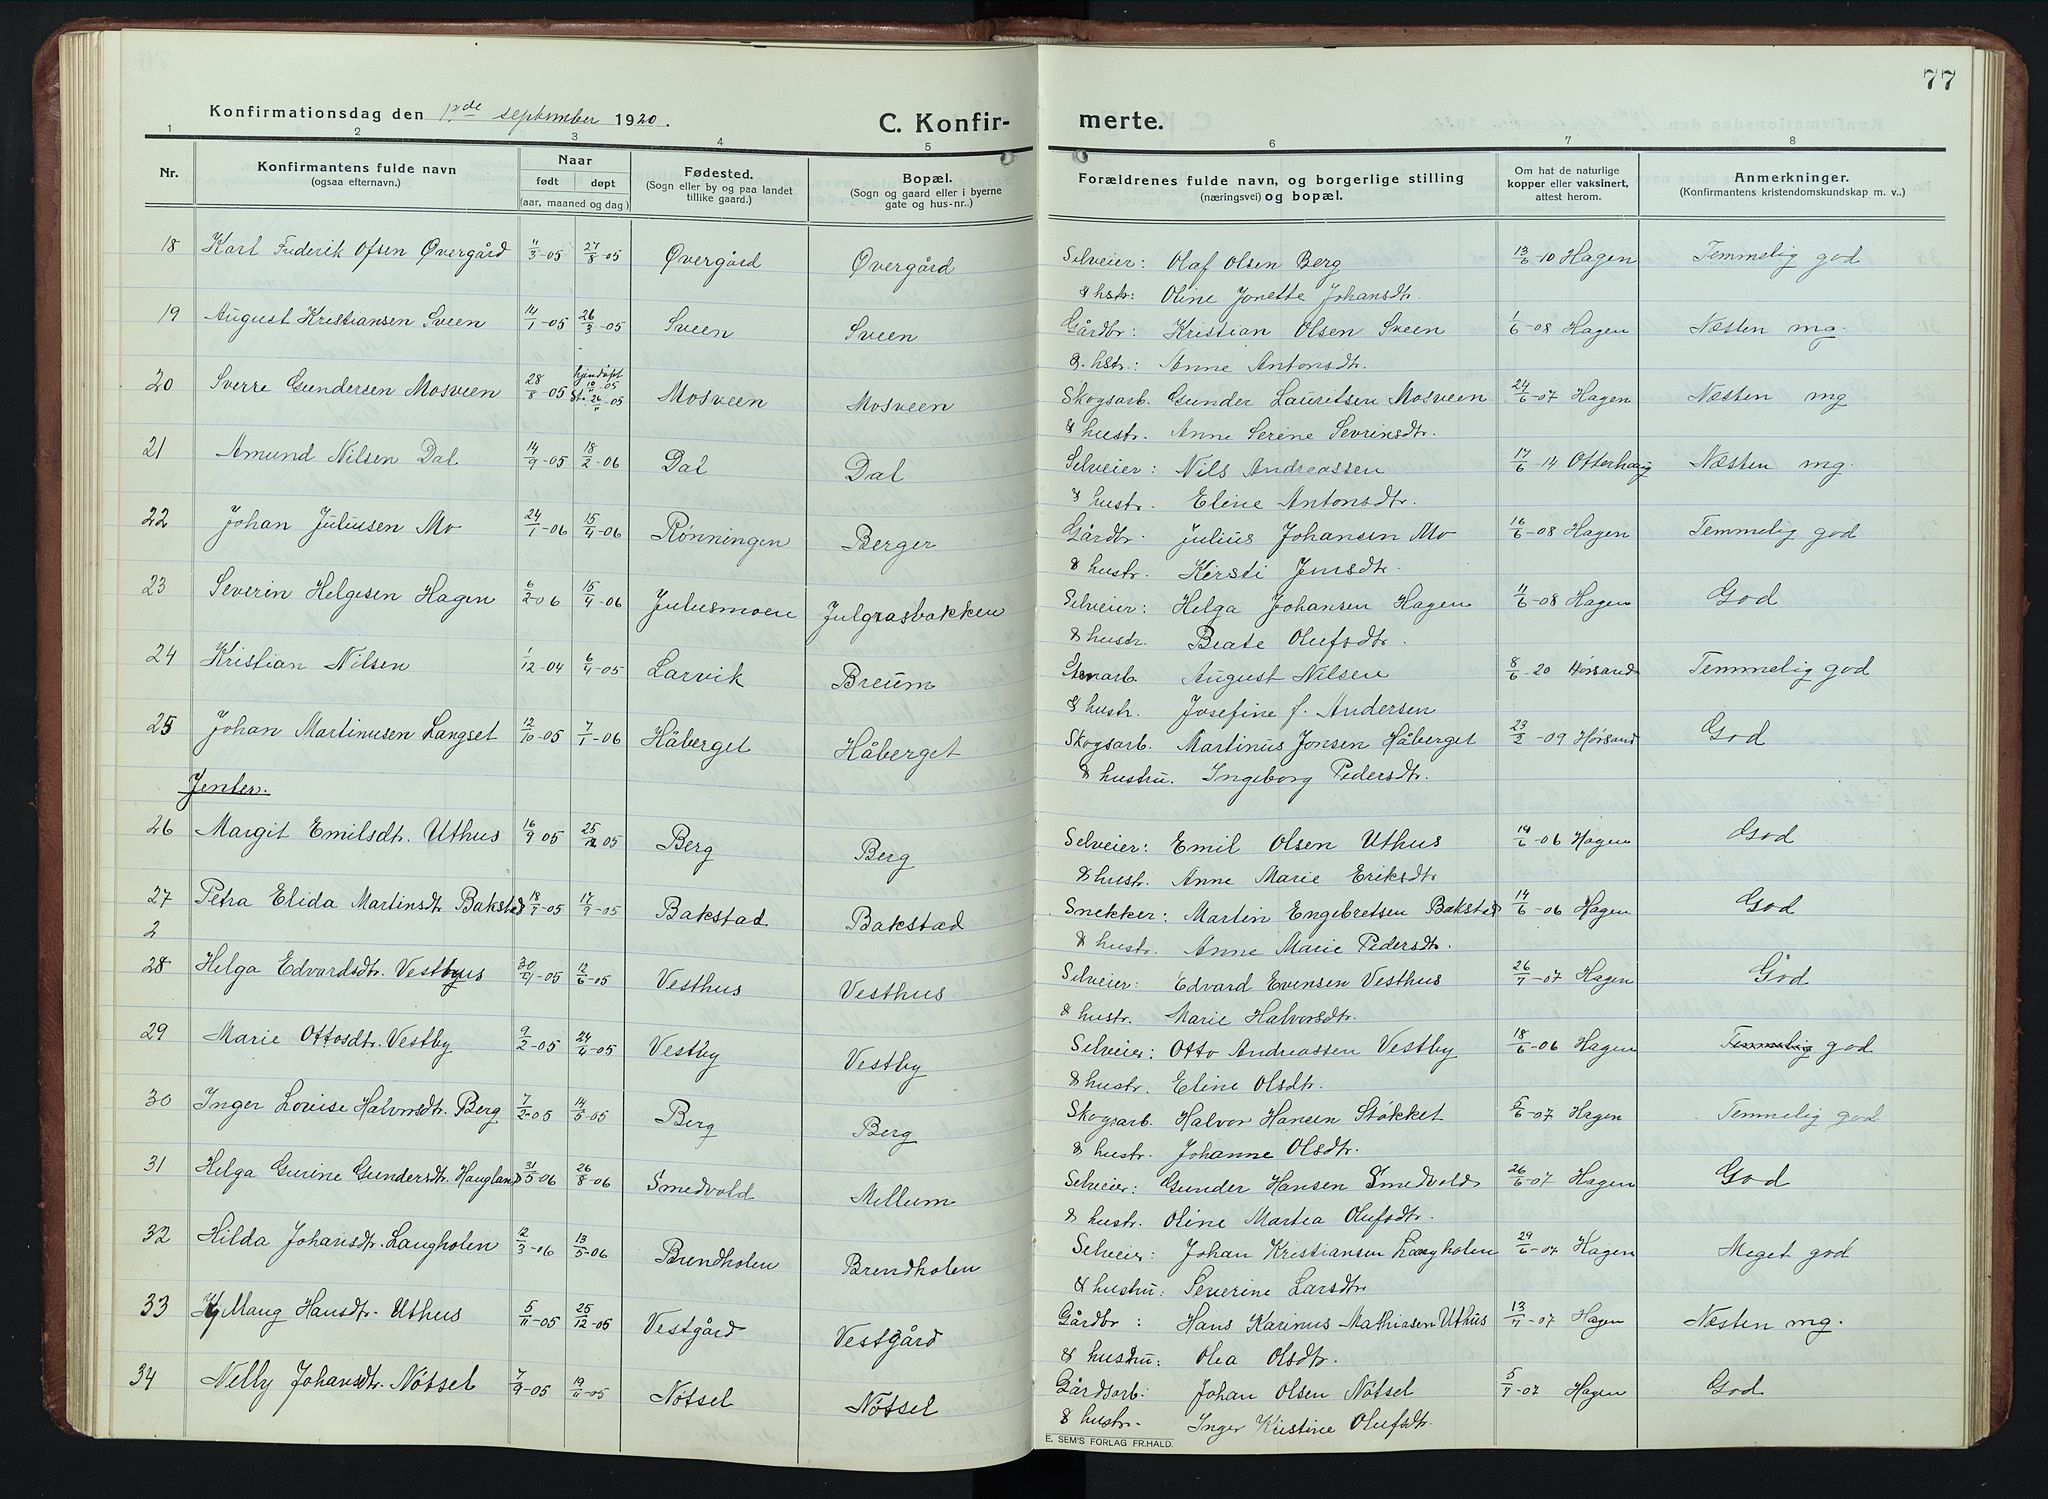 77
Konfirmationsdag den 12de september 1920.
C. Konfir- merte.
1 2 3 4 5 6 7 8
Nr.
Konfirmantens fulde navn
(ogsaa efternavn.)
Naar
født døpt
(aar, maaned og dag)
Fødested.
(Sogn eller by og paa landet
tillike gaard.)
Bopæl.
(Sogn og gaard eller i byerne
gate og hus-nr..)
Forældrenes fulde navn, og borgerlige stilling
(næringsvei) og bopæl.
Om hat de naturlige
kopper eller vaksinert,
attest herom.
Anmerkninger.
(Konfirmantens kristendomskundskap m. v..)
18 Karl Frederik Ofsen Øvergård 11/3-05 27/8-05 Øvergård Øvergård Selveier: Olaf Olsen Berg 13/6-10 Hagen Temmelig god
& hstr: Oline Jonette Johansdtr.
19 August Kristiansen Sveen 14/1-05 26/3-05 Sveen Sveen Gårdbr: Kristian Olsen Sveen 1/6-08 Hagen Næsten mg.
& hstr.: Anne Antonsdtr.
20 Sverre Gundersen Mosveen 28/8-05 hjemdøpt 10/11-05 St. 26/11-05 Mosveen Mosveen Skogsarb. Gunder Lauritsen Mosveen 24/6-07 Hagen Næsten mg
& hustr. Anne Serine Sevrinsdtr.
21 Amund Nilsen Dal 14/9-05 18/2-06 Dal Dal Selveier: Nils Andreassen 17/6-14 Otterhaug Næsten mg.
& hustr. Eline Antonsdtr.
22 Johan Juliusen Mo 24/1-06 15/4-06 Rønningen Berger Gårdbr. Julius Johansen Mo 16/6-08 Hagen Temmelig god
& hustr. Kirsti Jensdtr.
23 Severin Helgesen Hagen 6/2-06 15/4-06 Julusmoen Julgrasbakken Selveier: Helga Johansen Hagen 11/6-08 Hagen God
& hustr. Beate Olufsdtr.
24 Kristian Nilsen 1/12-04 6/4-05 Larvik Breum Stenarb. August Nilsen 8/6-20 Hørsand Temmelig god
& hustr. Josefine f. Andersen
25 Johan Martinusen Langset 12/10-05 7/1-06 Håberget Håberget Skogsarb. Martinus Jonsen Håberget 23/2-09 Hørsand God
& hustru. Ingeborg Pedersdtr.
Jenter.
26 Margit Emilsdtr. Uthus 16/9 05 25/12 05 Berg Berg Selveier: Emil Olsen Uthus 14/6-06 Hagen God
& hustr. Anne Marie Eriksdtr
27 Petra Elida Martinsdtr Bakstad 18/7-05 17/9-05 Bakstad Bakstad Snekker: Martin Engebretsen Bakstad 14/6-06 Hagen God
2 & hustr. Anne Marie Pedersdtr.
28 Helga Edvardsdtr. Vesthus 30/4-05 12/6-05 Vesthus Vesthus Selveier: Edvard Evensen Vesthus 26/7-07 Hagen God
& hustr. Marie Halvorsdtr.
29 Marie Ottosdtr. Vestby 9/2-05 24/4-05 Vestby Vestby Selveier: Otto Andreassen Vestby 18/6-06 Hagen Temmelig god
& hustr. Eline Olsdtr.
30 Inger Lovise Halvorsdtr. Berg 7/2-05 14/5-05 Berg Berg Skogsarb. Halvor Hansen Støkket 5/6-07 Hagen Temmelig god
& hustr. Johanne Olsdtr.
31 Helga Gurine Gundersdtr. Haugland 31/5-06 26/8-06 Smedvold Millum Selveier: Gunder Hansen Smedvold 26/6-07 Hagen God
& hustr. Oline Martea Olufsdtr.
32 Hilda Johansdtr. Langholen 2/3-06 13/5-06 Brendholen Brendholen Selveier: Johan Kristiansen Langholen 29/6-07 Hagen Meget god
& hustru: Severine Larsdtr
33 Maug Hansdtr. Uthus 5/11-05 25/12-05 Vestgård Vestgård Gårdbr: Hans Karinus Mathiasen Uthus 13/7-07 Hagen Næsten mg.
& hustru: Olea Olsdtr.
34 Nelly Johansdtr. Nötsel 7/9-05 19/11-05 Nötsel Nötsel Gårdsarb: Johan Olsen Nötsel 5/7-07 Hagen God
& hustr. Inger Kristine Olufsdtr.
E. SEM'S FORLAG FR.HALD.